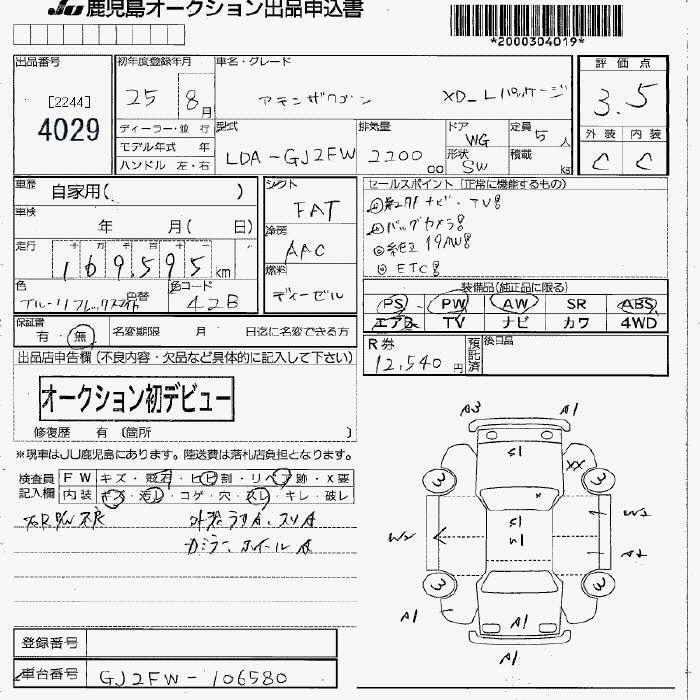 JU 鹿児島オークション出品申込書
*2000304019*
出品番号
[2244]
4029
初年度登録年月
25 8月
車名・グレード
アテンザワゴン XD_Lパッケージ
評価点
3.5
外装 内装
C C
ディーラー・並 行
モデル年式 年
ハンドル 左・右
型式
LDA-GJ2FW
排気量
2200 00
ドア
WG
形状
SW
定員 5 人
積載 kg
車歴 自家用( )
車検 年 月( 日)
走行 十 万 千 百 十
169,595 km
色 色替
ブルーリフレックスマイカ
色コード
42B
シフト
FAT
冷房
AAC
燃料
ディーゼル
セールスポイント(正常に機能するもの)
ナビ・TV
バックカメラ
純正19AW
ETC
装備品(純正品に限る)
PS PW AW SR ABS
エアB TV ナビ カワ 4WD
保証書
有・無
名変期限 月 日迄に名変できる方
R券
12,540円
預託済
後日品
出品店申告欄(不良内容・欠品など具体的に記入して下さい)
オークション初デビュー
修復歴 有 (箇所 )
※現車はJU鹿児島にあります。陸送費は落札店負担となります。
検査員記入欄
FW キズ・飛石・ヒビ割・リペア跡・X要
内装 キズ・汚レ・コゲ・穴・スレ・キレ・破レ
外装ラフA、スリA
カミラー、ホイールA
A3 A1
S1
XX
3 3
W2
S1
W1
W2
A2
3 3
A1
A1
A1
登録番号
車台番号 GJ2FW-106580